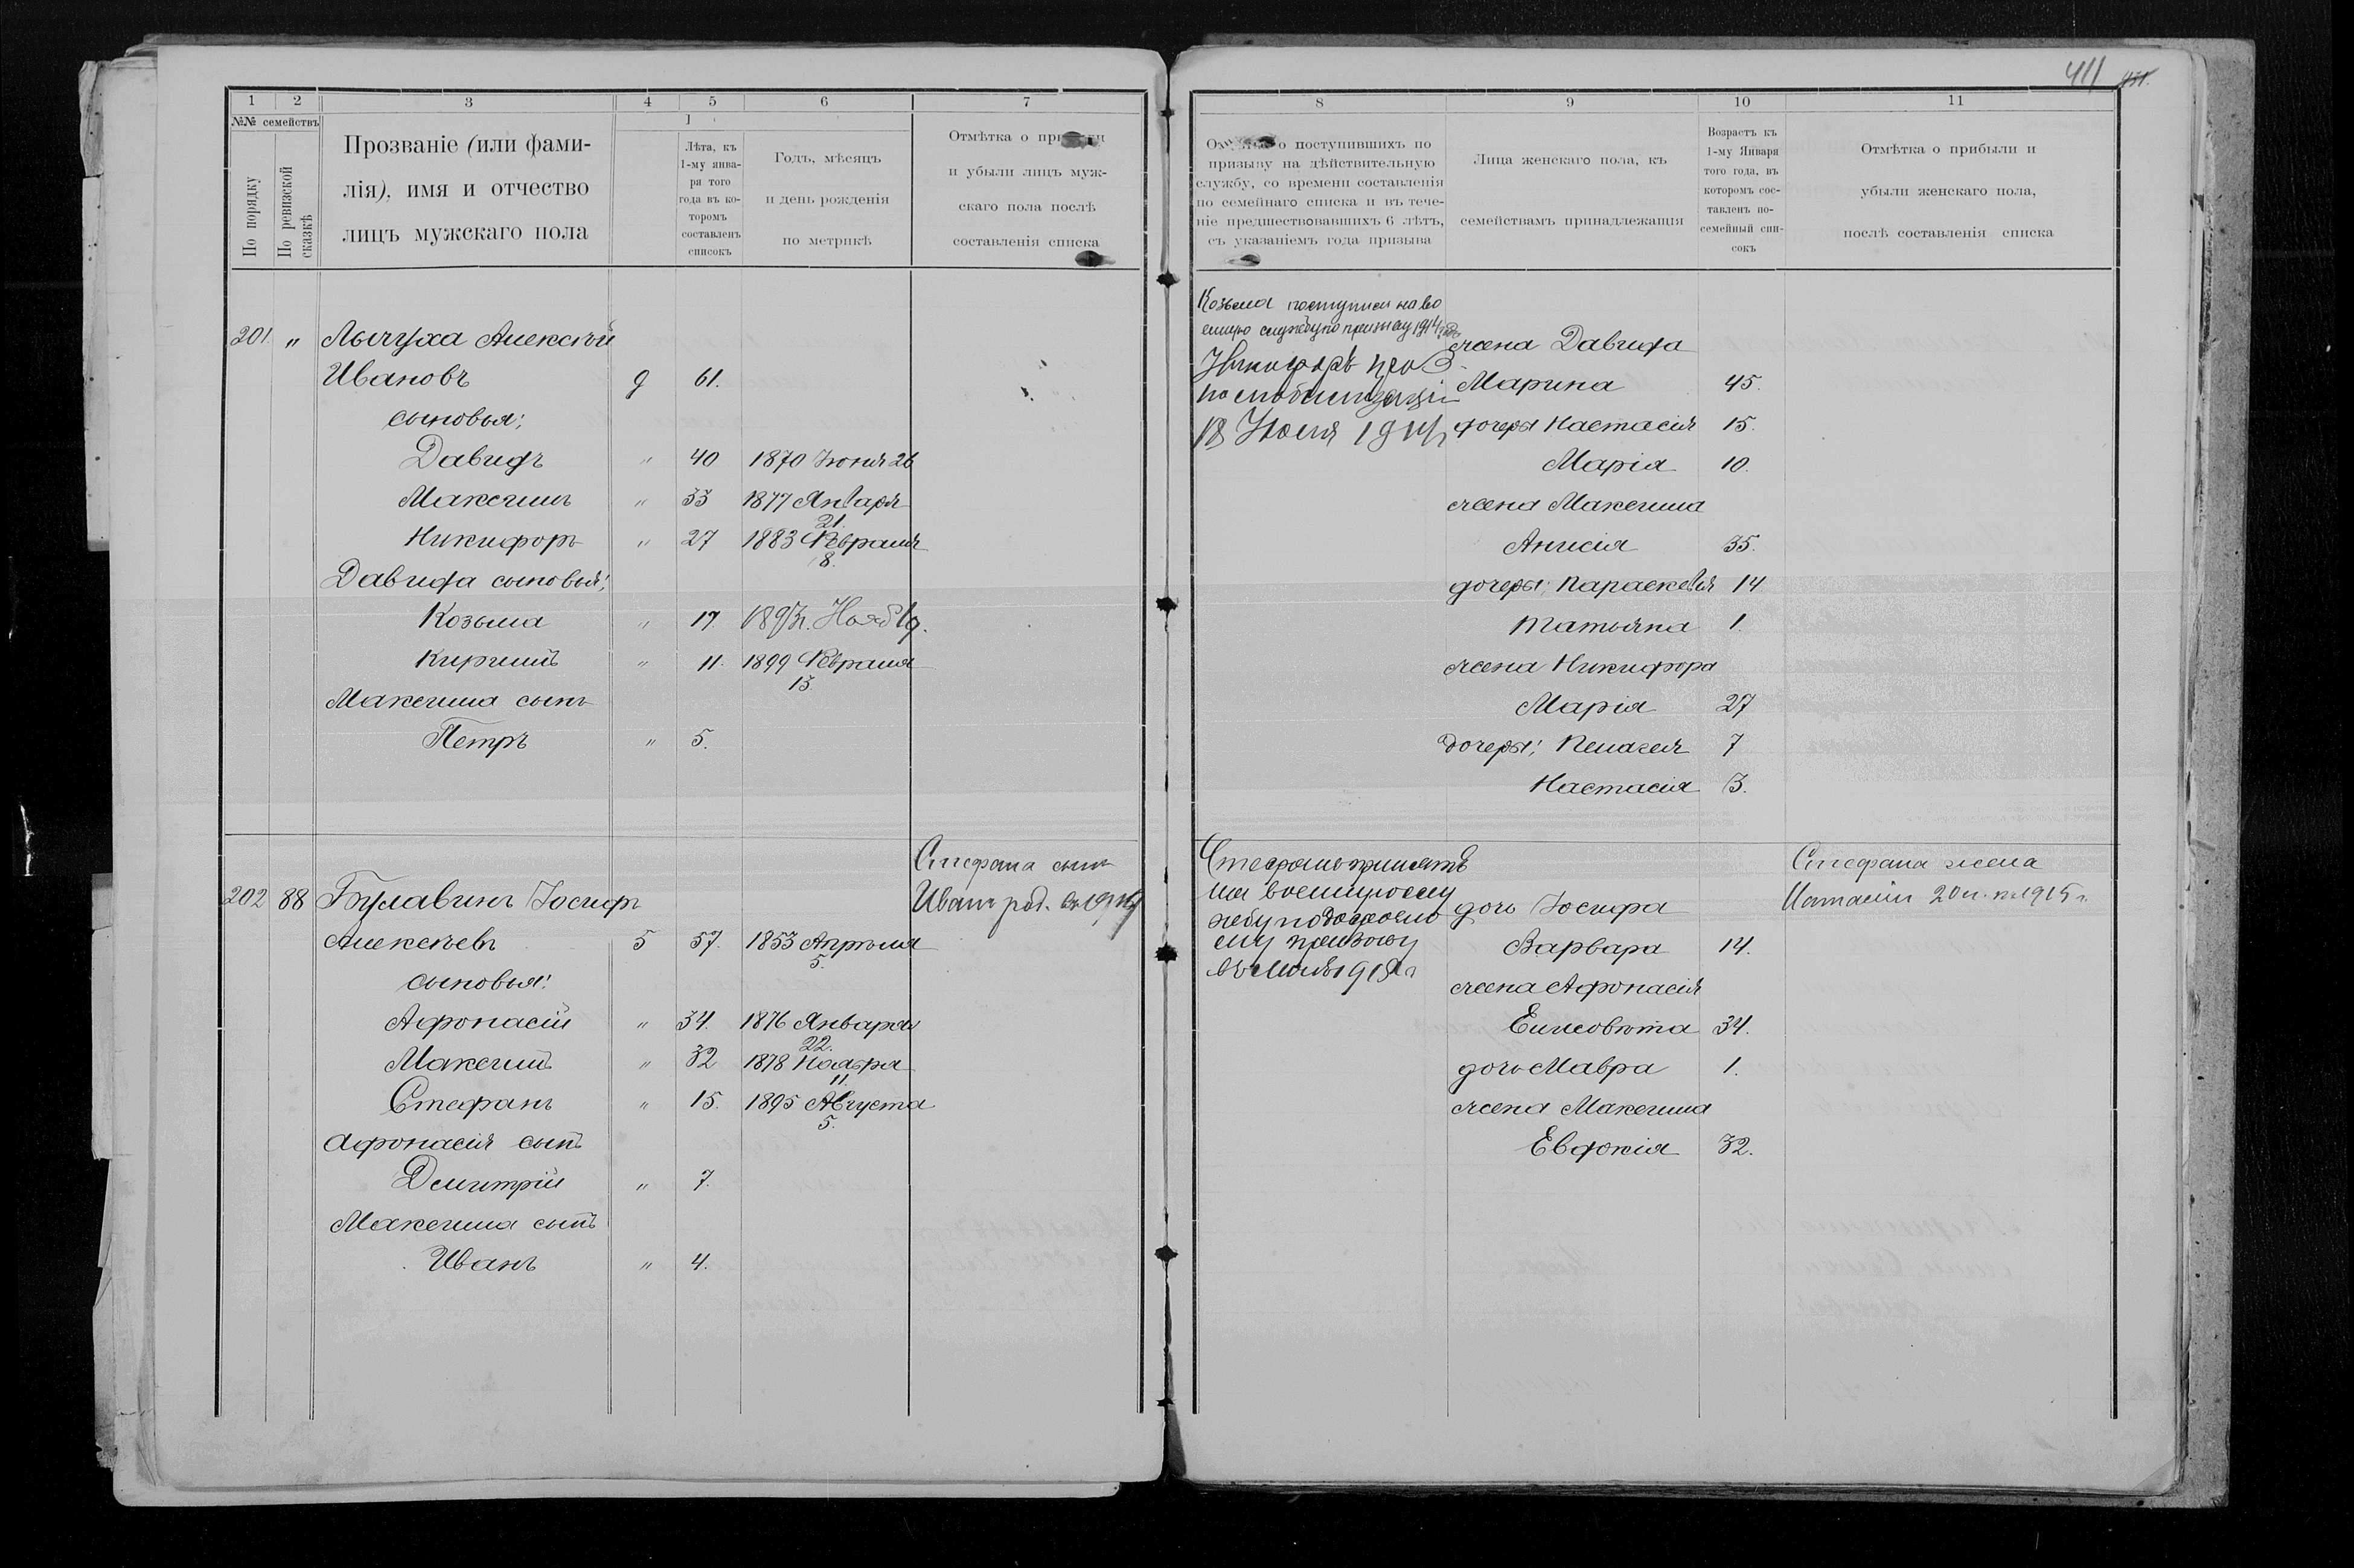 411
1 2 3 4 5 6 7
№№ семействъ
По порядку
По ревизской сказкѣ
Прозваніе (или фами-
лія), имя и отчество
лицъ мужскаго пола
Лѣта, къ
1-му янва-
ря того
года въ ко-
торомъ
составленъ
списокъ
Годъ, мѣсяцъ
и день рожденія
по метрикѣ
Отмѣтка о
и убыли лицъ муж-
скаго пола послѣ
составленія списка
201 " Лычуха Алексѣй
Ивановъ 9 61.
сыновья:
Давидъ " 40 1870 Іюня 26
Максимъ " 33 1877 Января
21.
Никифоръ " 27 1883 Февраля
8.
Давида сыновья:
Козьма " 17 Нояб
Кирилъ " 11. 1899 Февраля
13.
Максима сынъ
Петръ " 5.
Стефана сынъ
Иванъ род. въ
202 88 Булавинъ Іосифъ
Алексѣевъ 5 57. 1853 Апрѣля
5.
сыновья:
Афонасій " 34. 1876 Января
22.
Максимъ " 32 1878 Ноября
11.
Стефанъ " 15. 1895 Августа
5.
Афонасія сынъ
Дмитрій " 7.
Максима сынъ
Иванъ " 4.
8 9 10 11
о поступившихъ по
призыву на дѣйствительную
службу, со времени составленія
по семейнаго списка и въ тече-
ніе предшествовавшихъ 6 лѣтъ,
съ указаніемъ года призыва
Лица женскаго пола, къ
семействамъ принадлежащія
Возрастъ къ
1-му Января
того года, въ
которомъ сос-
тавленъ по-
семейный спи-
сокъ
Отмѣтка о прибыли и
убыли женскаго пола,
послѣ составленія списка
Козьма поступилъ на во
енную службу по призыву 1914
Никифоръ
по мобилизаціи
18 Іюля 1914
жена Давида
Марина 45.
дочеры Настасія 15.
Марія 10.
жена Максима
Анисія 35.
дочеры: Параскевія 14
Татьяна 1.
жена Никифора
Марія 27
дочеры: Пелагея 7
Настасія 3.
Стефанъ принятъ
на военную слу
жбу по досрочно
му призыву
въ
дочь Іосифа
Варвара 14.
жена Афонасія
Елисовѣта 34.
дочь Мавра 1.
жена Максима
Евдокія 32.
Стефана жена
Наталія 20 л. въ 1915 г.